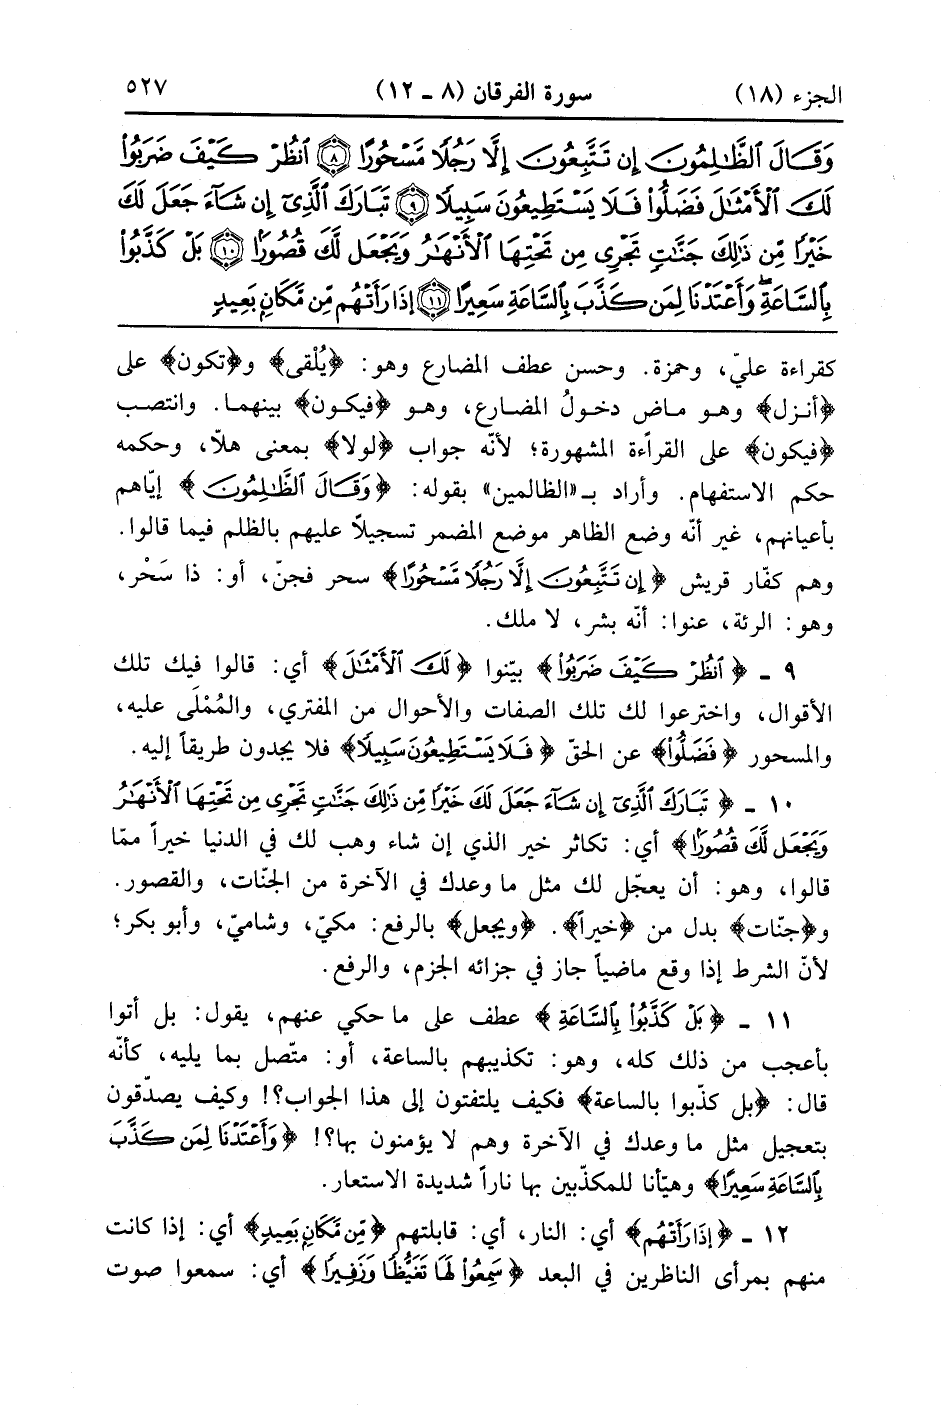 الجزء (١٨) سورة الفرقان (٨ ـ ١٢) ٥٢٧
وَقَالَ ٱلظَّٰلِمُونَ إِن تَتَّبِعُونَ إِلَّا رَجُلًا مَّسْحُورًا ﴿٨﴾ ٱنظُرْ كَيْفَ ضَرَبُوا۟
لَكَ ٱلْأَمْثَٰلَ فَضَلُّوا۟ فَلَا يَسْتَطِيعُونَ سَبِيلًا ﴿٩﴾ تَبَارَكَ ٱلَّذِىٓ إِن شَآءَ جَعَلَ لَكَ
خَيْرًا مِّن ذَٰلِكَ جَنَّٰتٍ تَجْرِى مِن تَحْتِهَا ٱلْأَنْهَٰرُ وَيَجْعَل لَّكَ قُصُورًۢا ﴿١٠﴾ بَلْ كَذَّبُوا۟
بِٱلسَّاعَةِ ۖ وَأَعْتَدْنَا لِمَن كَذَّبَ بِٱلسَّاعَةِ سَعِيرًا ﴿١١﴾ إِذَا رَأَتْهُم مِّن مَّكَانٍۭ بَعِيدٍ
كقراءة عليّ، وحمزة. وحسن عطف المضارع وهو: ﴿يُلْقى﴾ و﴿تكون﴾ على
﴿أنزل﴾ وهو ماض دخولُ المضارع، وهو ﴿فيكون﴾ بينهما. وانتصب
﴿فيكون﴾ على القراءة المشهورة؛ لأنّه جواب ﴿لولا﴾ بمعنى هلاّ، وحكمه
حكم الاستفهام. وأراد بـ «الظالمين» بقوله: ﴿وَقَالَ ٱلظَّٰلِمُونَ﴾ إيّاهم
بأعيانهم، غير أنّه وضع الظاهر موضع المضمر تسجيلاً عليهم بالظلم فيما قالوا.
وهم كفّار قريش ﴿إِن تَتَّبِعُونَ إِلَّا رَجُلًا مَّسْحُورًا﴾ سحر فجنّ، أو: ذا سَحْر،
وهو: الرئة، عنوا: أنّه بشر، لا ملك.
٩ ـ ﴿ٱنظُرْ كَيْفَ ضَرَبُوا۟﴾ بيّنوا ﴿لَكَ ٱلْأَمْثَٰلَ﴾ أي: قالوا فيك تلك
الأقوال، واخترعوا لك تلك الصفات والأحوال من المفتري، والمُمْلَى عليه،
والمسحور ﴿فَضَلُّوا۟﴾ عن الحقّ ﴿فَلَا يَسْتَطِيعُونَ سَبِيلًا﴾ فلا يجدون طريقاً إليه.
١٠ ـ ﴿تَبَارَكَ ٱلَّذِىٓ إِن شَآءَ جَعَلَ لَكَ خَيْرًا مِّن ذَٰلِكَ جَنَّٰتٍ تَجْرِى مِن تَحْتِهَا ٱلْأَنْهَٰرُ
وَيَجْعَل لَّكَ قُصُورًۢا﴾ أي: تكاثر خير الذي إن شاء وهب لك في الدنيا خيراً ممّا
قالوا، وهو: أن يعجّل لك مثل ما وعدك في الآخرة من الجنّات، والقصور.
و﴿جنّات﴾ بدل من ﴿خيراً﴾. ﴿ويجعل﴾ بالرفع: مكيّ، وشاميّ، وأبو بكر؛
لأنّ الشرط إذا وقع ماضياً جاز في جزائه الجزم، والرفع.
١١ ـ ﴿بَلْ كَذَّبُوا۟ بِٱلسَّاعَةِ﴾ عطف على ما حكي عنهم، يقول: بل أتوا
بأعجب من ذلك كله، وهو: تكذيبهم بالساعة، أو: متّصل بما يليه، كأنّه
قال: ﴿بل كذّبوا بالساعة﴾ فكيف يلتفتون إلى هذا الجواب؟! وكيف يصدّقون
بتعجيل مثل ما وعدك في الآخرة وهم لا يؤمنون بها؟! ﴿وَأَعْتَدْنَا لِمَن كَذَّبَ
بِٱلسَّاعَةِ سَعِيرًا﴾ وهيّأنا للمكذّبين بها ناراً شديدة الاستعار.
١٢ ـ ﴿إِذَا رَأَتْهُم﴾ أي: النار، أي: قابلتهم ﴿مِّن مَّكَانٍۭ بَعِيدٍ﴾ أي: إذا كانت
منهم بمرأى الناظرين في البعد ﴿سَمِعُوا۟ لَهَا تَغَيُّظًا وَزَفِيرًا﴾ أي: سمعوا صوت